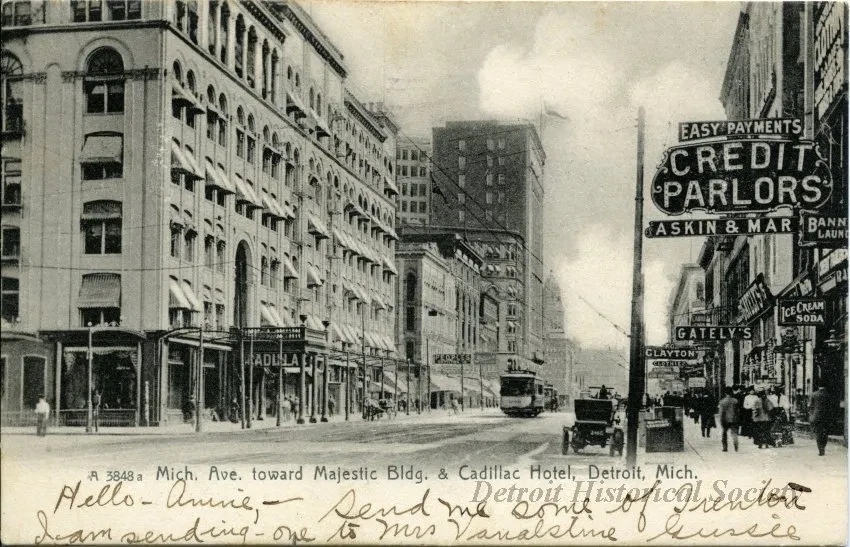 EASY PAYMENTS
CREDIT
PARLORS
ASKIN & MAR
BANN
LAUN
ICE CREAM
SODA
GATELY'S
CLAYTON
CLOTHIER
CADILLA
A 3848a Mich. Ave. toward Majestic Bldg. & Cadillac Hotel, Detroit, Mich.
Detroit Historical Society
Hello - Annie, - Send me some of Trenton
I am sending - one to Mrs Vanalstine Gussie